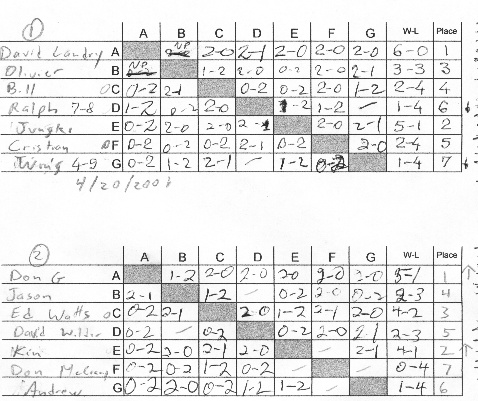 ① A B C D E F G W-L Place
David Landry A NP 2-0 2-1 2-0 2-0 2-0 6-0 1
Olivier B NP 1-2 2-0 0-2 2-0 2-1 3-3 3
Bill C 0-2 2-1 0-2 0-2 2-0 1-2 2-4 4
Ralph 7-8 D 1-2 0-2 2-0 1-2 1-2 – 1-4 6
E 0-2 2-0 2-0 2-1 2-0 2-1 5-1 2
Cristian F 0-2 0-2 0-2 2-1 0-2 2-0 2-4 5
4-9 G 0-2 1-2 2-1 – 1-2 0-2 1-4 7
4/20/2001
② A B C D E F G W-L Place
Don G A 1-2 2-0 2-0 2-0 2-0 5-1 1
Jason B 2-1 1-2 – 0-2 2-0 0-2 2-3 4
Ed Watts C 0-2 2-1 2-0 1-2 2-1 2-0 4-2 3
David D 0-2 – 0-2 0-2 2-0 2-1 2-3 5
Kin E 0-2 2-0 2-1 2-0 – 2-1 4-1 2
Don F 0-2 0-2 1-2 0-2 – – 0-4 7
Andrew G 0-2 2-0 0-2 1-2 1-2 – 1-4 6